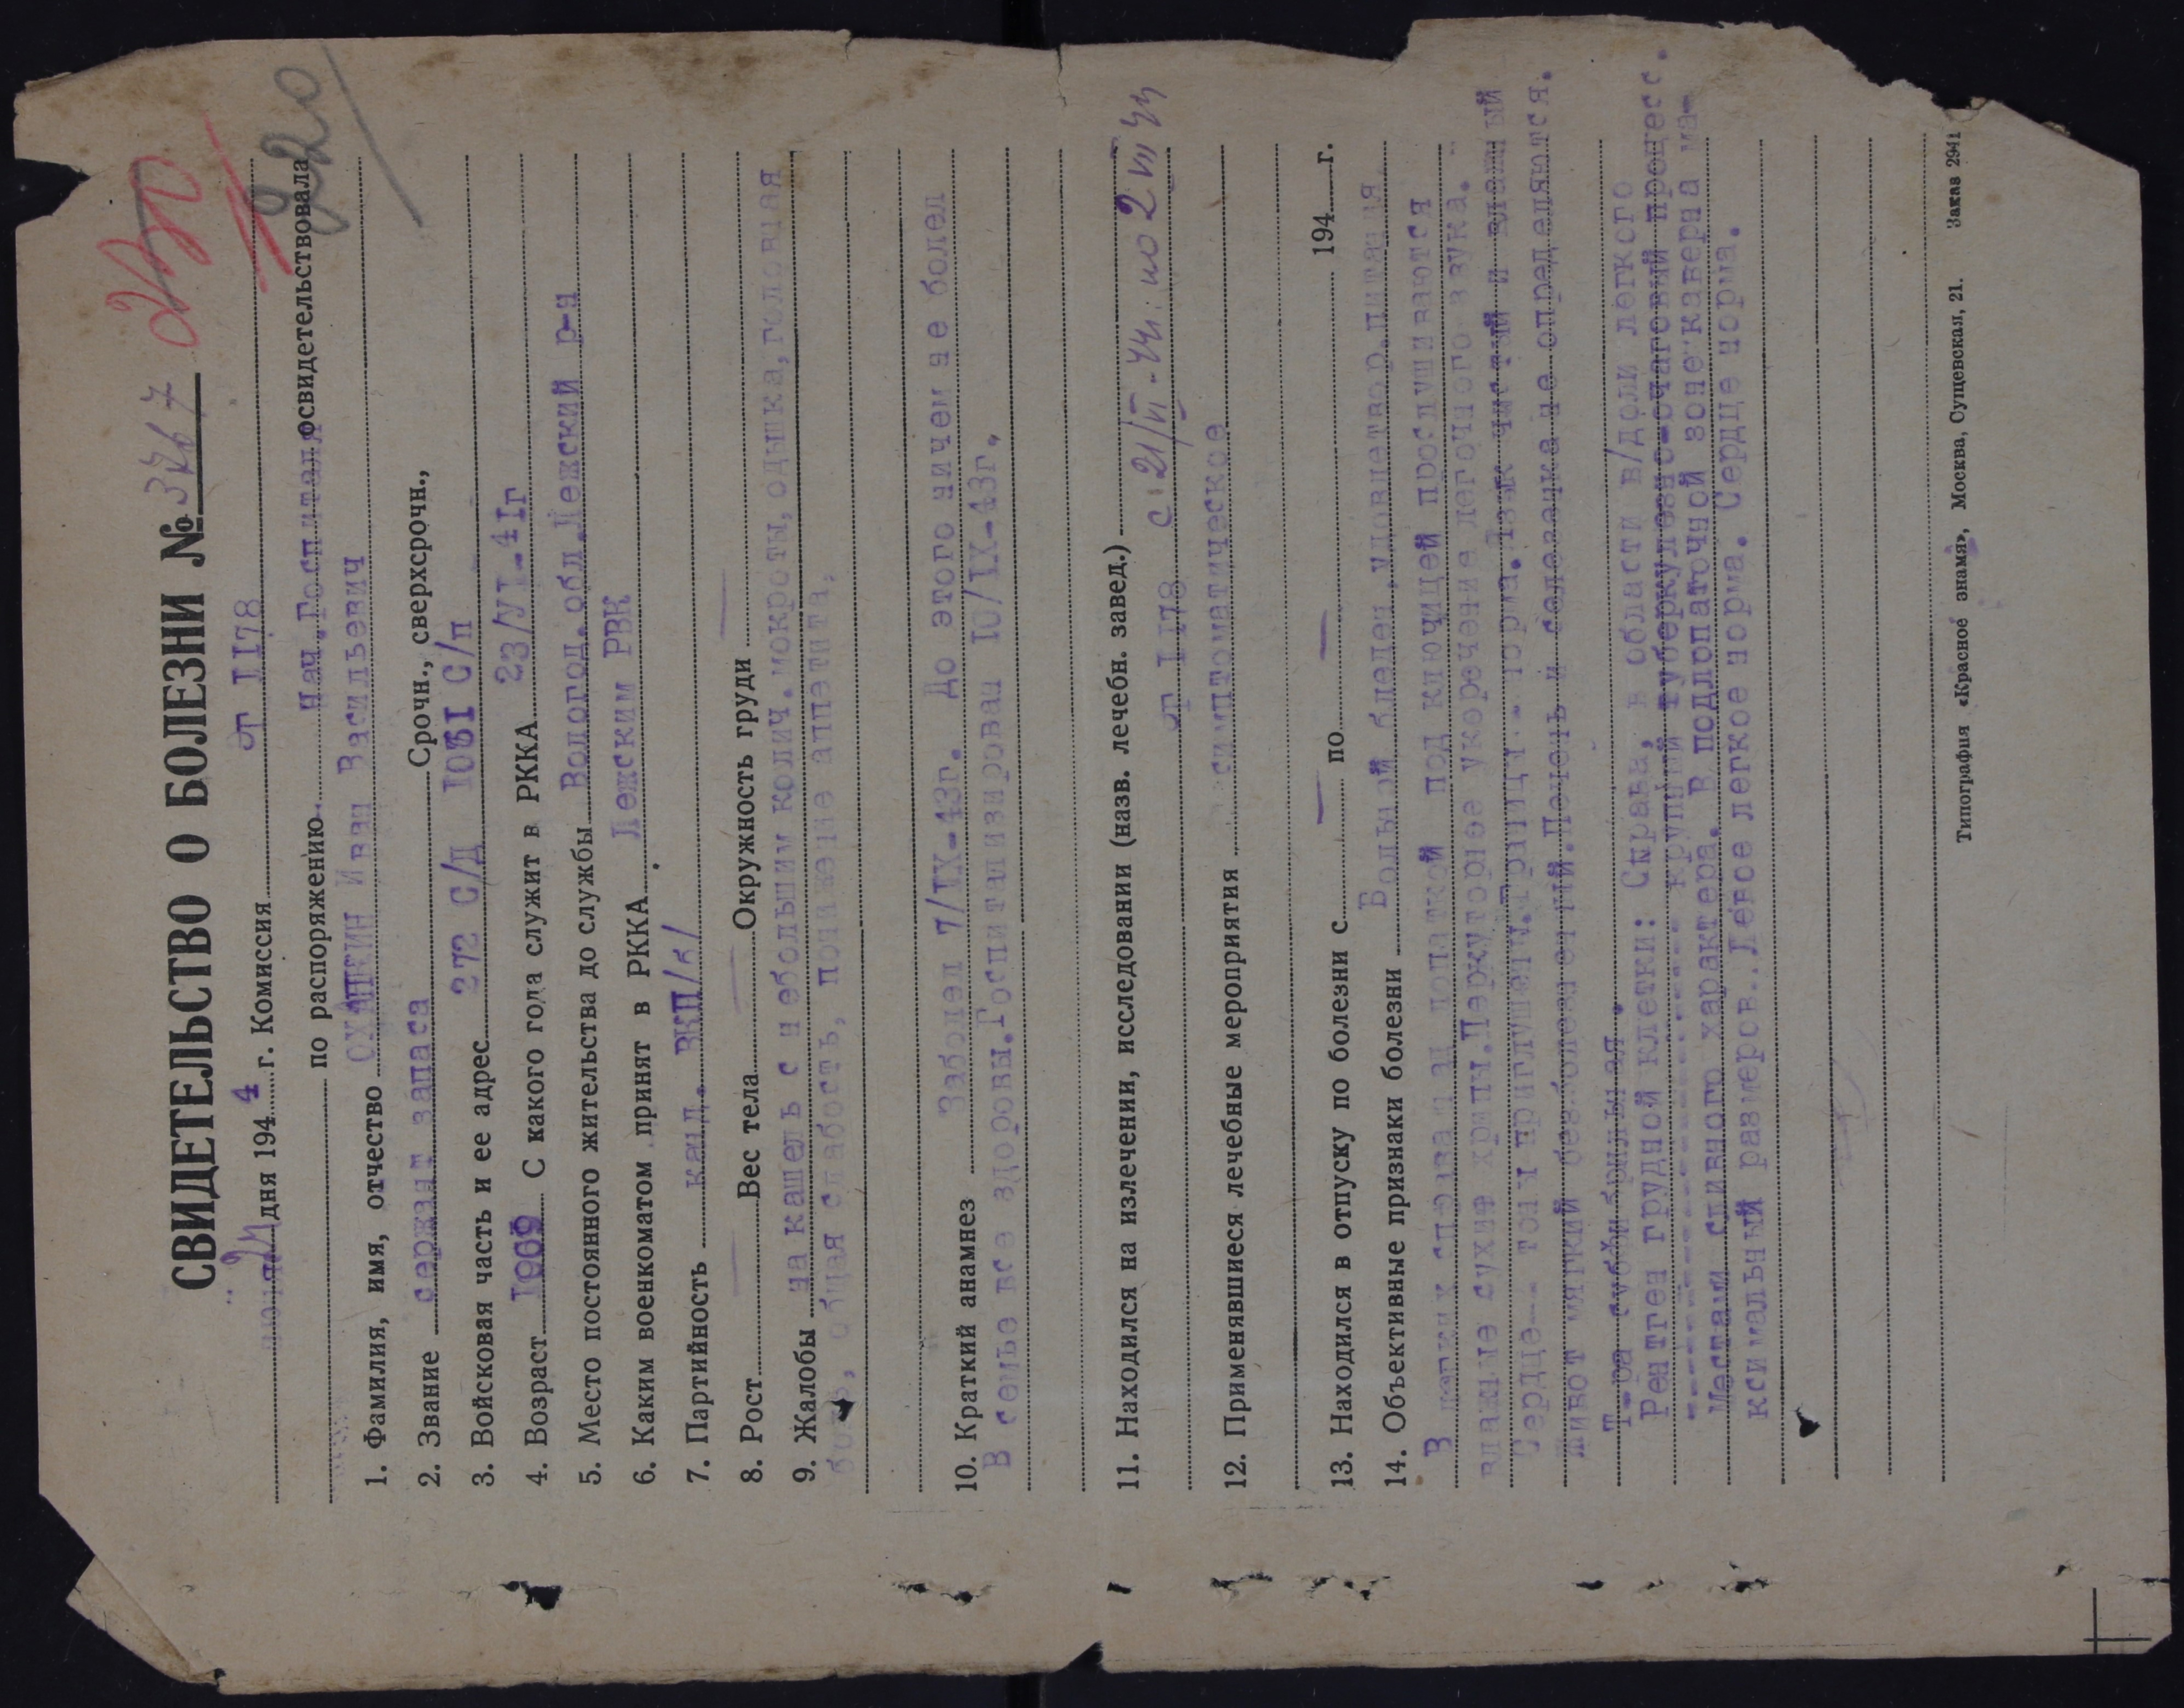 СВИДЕТЕЛЬСТВО О БОЛЕЗНИ № 3767
220
июля 21 дня 1944 г. Комиссия эг 1178
по распоряжению Нач.Госпиталя освидетельствовала
1. Фамилия, имя, отчество ОХАПКИН Иван Васильевич
2. Звание сержант запаса Срочн., сверхсрочн.,
3. Войсковая часть и ее адрес 272 С/Д 1061 С/п
4. Возраст 1909 С какого года служит в РККА 23/VI-41г
5. Место постоянного жительства до службы Вологод.обл.Лежский р-н
6. Каким военкоматом принят в РККА Лежским РВК
7. Партийность канд. ВКП/б/
8. Рост — Вес тела — Окружность груди —
9. Жалобы на кашель с небольшим колич.мокроты,одышка,головная
боль, общая слабость, понижение аппетита.
10. Краткий анамнез Заболел 7/IX-43г. До этого ничем не болел
В семье все здоровы.Госпитализирован 10/IX-43г.
11. Находился на излечении, исследовании (назв. лечебн. завед.)
эг 1178 с 21/VI-44г. по 2 VII 44
12. Применявшиеся лечебные мероприятия симптоматическое
13. Находился в отпуску по болезни с — по — 194 г.
14. Объективные признаки болезни Больной бледен,удовлетвор.питания.
В легких справа над лопаткой под ключицей прослушиваются
влажные сухие хрипы.Перкуторное укорочение легочного звука.
Сердце-- тоны приглушены.Границы - норма.Язык чистый и влажный
Живот мягкий безболезненный.Печень и селезенка не определяются.
Т-ра субфибрильная.
Рентген грудной клетки: Справа, в области в/доли легкого
крупный туберкулезно-очаговый процесс.
Местами сливного характера. В подлопаточной зоне каверна ма-
ксимальный размеров. Левое легкое норма. Сердце норма.
Типография «Красное знамя», Москва, Сущевская, 21. Заказ 2941